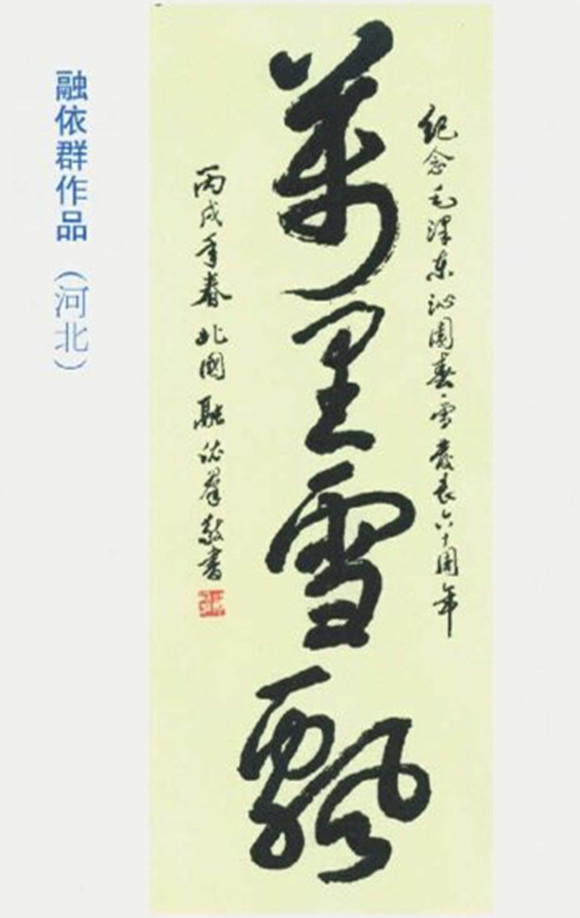 纪念毛泽东沁園春·雪發表六十周年
萬里雪飄
丙戌年春北國融依群敬書
融依群作品（河北）